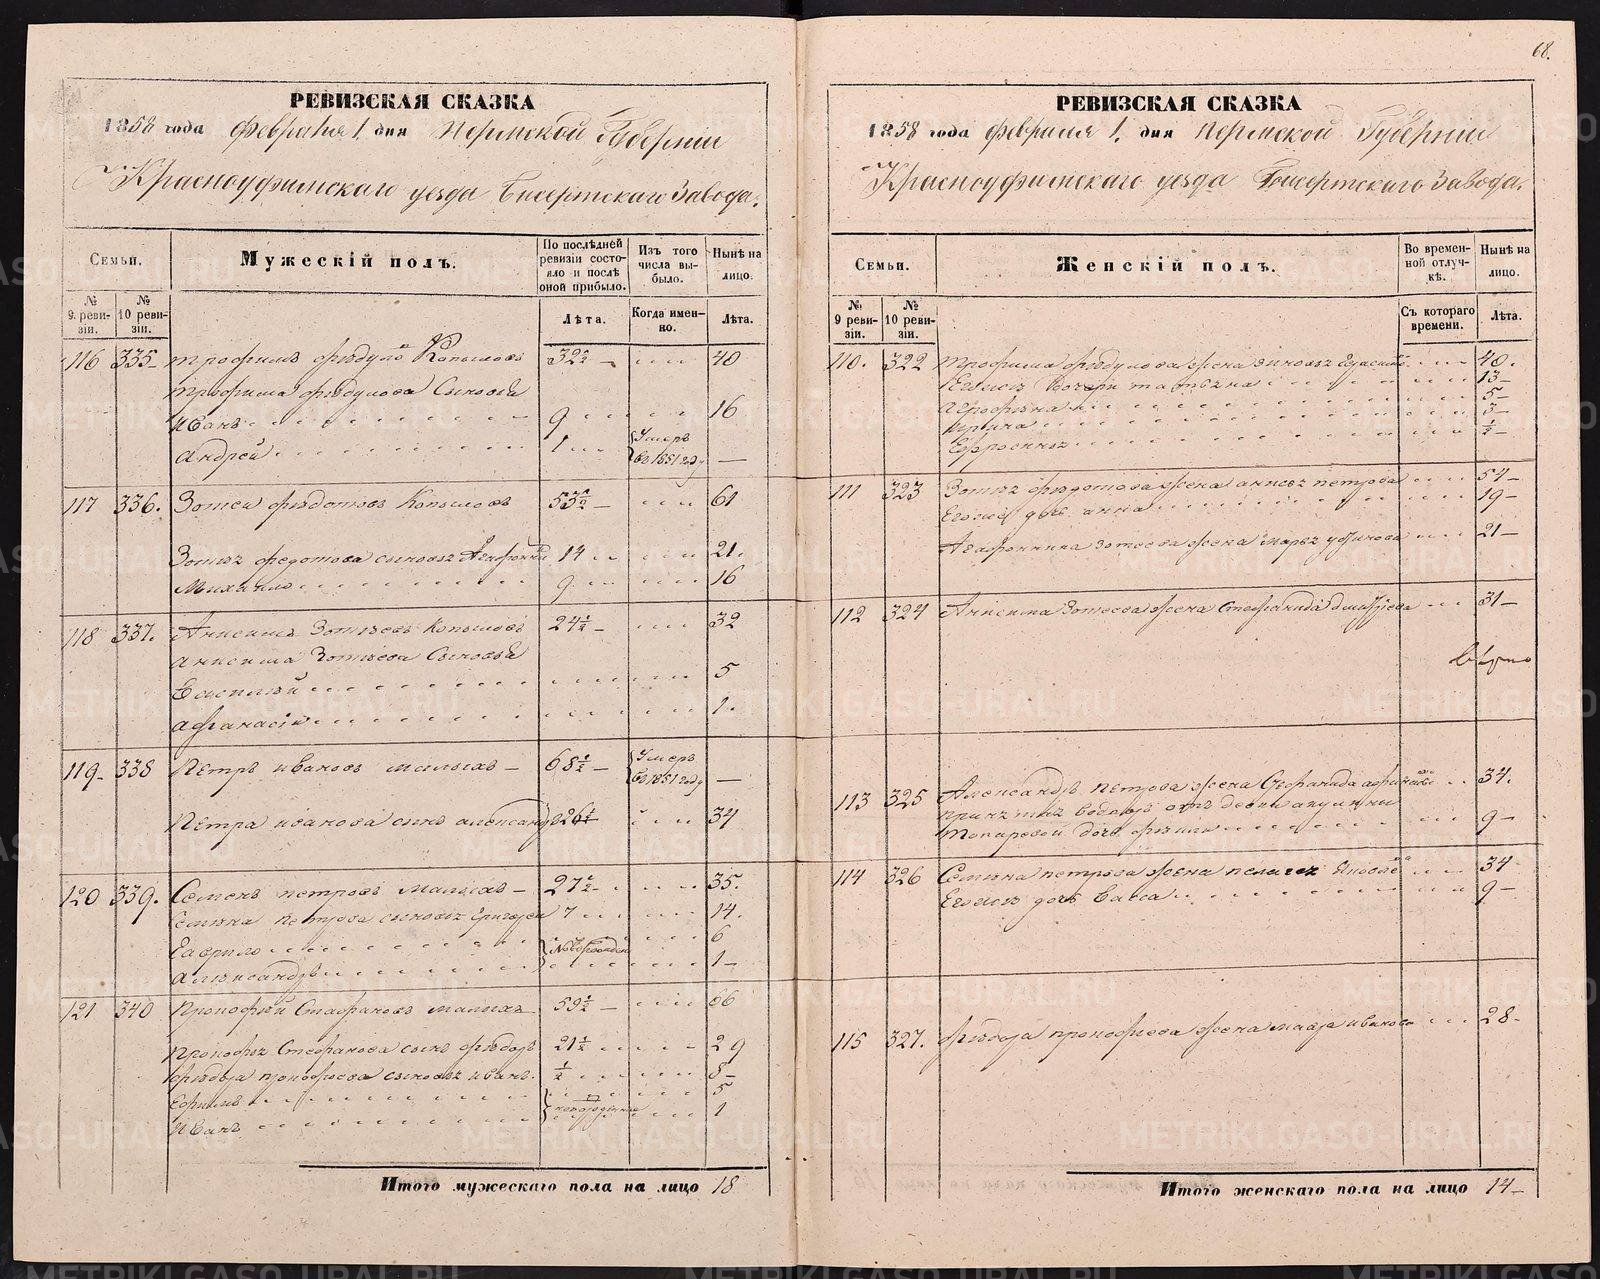 68.
РЕВИЗСКАЯ СКАЗКА
1858 года февраля 1. дня Пермской Губерніи
Красноуфимскаго уезда Бисертскаго Завода.
Семьи.
Мужескій полъ.
По послѣдней ревизіи состояло и послѣ оной прибыло.
Изъ того числа выбыло.
Нынѣ на лицо.
№ 9. ревизіи.
№ 10 ревизіи.
Лѣта.
Когда именно.
Лѣта.
116 335 трофимъ фѣдуло Копыловъ 32½ 40
трофима фѣдулова Сыновья
Иванъ 9 16
Андрей 1 Умеръ в 1851 году —
117 336. Зотеи фѣдотовъ Копыловъ 53½ 61
Зотѣя федотова сыновья Агафонъ 14 21.
Михайло 9 16
118 337. Анисимъ Зотѣевъ Копыловъ 24½ 32
анисима Зотѣева Сыновья
Василей 5
афанасіи 1.
119 338 Петръ ивановъ малыхъ 68½ Умеръ в 1851 году —
Петра иванова сынъ александръ 26½ 34
120 339. Семенъ петровъ малыхъ 27½ 35.
Семена петрова сыновья григорей 7 14.
Гаврило новорожден 6
александръ 1
121 340 Прокофей Стефановъ малыхъ 59½ 66
Прокофья Стефанова сынъ фѣдоръ 21½ 29
фѣдора прокофьева сыновья иванъ. ½ 8
Ефимъ новорожденные 5
Иванъ 1
Итого мужескаго пола на лицо 18
РЕВИЗСКАЯ СКАЗКА
1858 года февраля 1. дня Пермской Губерніи
Красноуфимскаго уезда Бисертскаго Завода.
Семьи.
Женскій полъ.
Во временной отлучкѣ.
Нынѣ на лицо.
№ 9 ревизіи.
№ 10 ревизіи.
Съ котораго времени.
Лѣта.
110. 322 трофима фѣдулова жена зиновья 40.
Егоже дочери татьяна 13
Агрофѣна 5
Ирина 3
Ефросинья ½
111 323 Зотѣя федотова жена анисья петрова 54
Егоже дочь анна 19
Агафонника зотеева жена марья 21
112 324 Анисима Зотеева жена Стефанида 31
Вѣрно
113 325 Александръ Петрова жена Стефанида 34.
дочь 9
114 326 Семена петрова жена пелагея 34
Егоже дочь Васса 9
115 327. фѣдора прокофьева жена мавра иванова 28
Итого женскаго пола на лицо 14